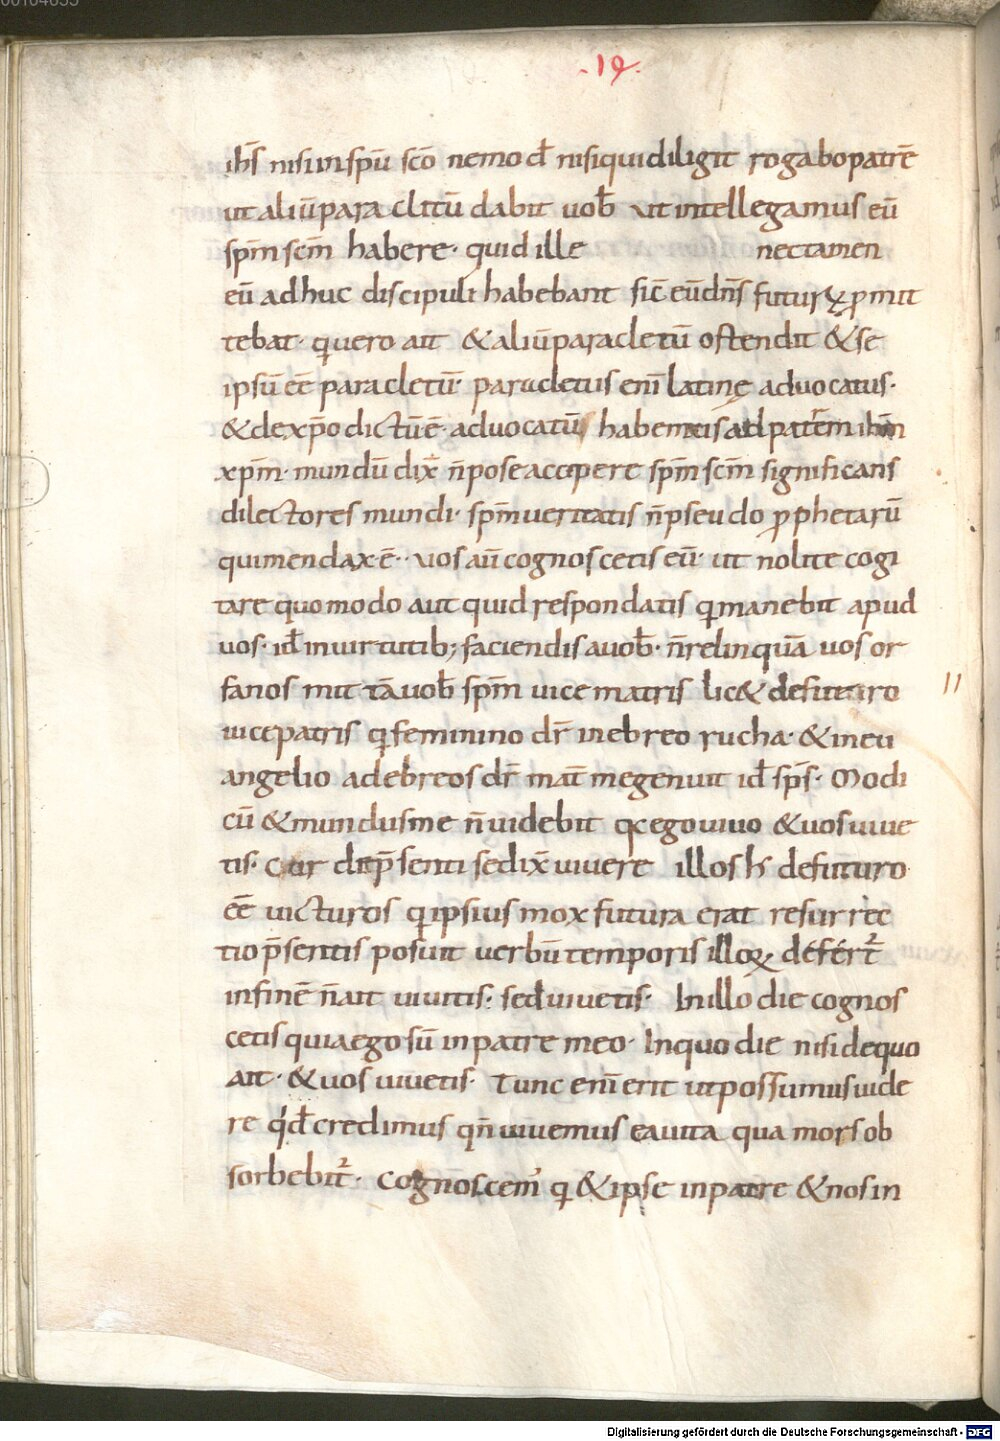 00104655
.19.
ihs̄ nisi in spū scō nemo d̄ nisi qui diligit rogabo patrē
ut aliū para clitū dabit uob̄ ut intellegamus eū
spm̄ scm̄ habere· quid ille nec tamen
eū ad huc discipuli habebant sic̄ eū dn̄s futurꝝ ꝓmit
tebat· quero ait & aliū paracletū ostendit & se
ipsū eē paracletū· paracletus eni᷎ latinę aduocatus·
& de xp̄o dictū ē· aduocatū habemus ad patrem ihm̄
xp̄m· mundū dix̄ n̄ pose accipere spm̄ scm̄ significans
dilectores mundi· spm̄ ueritatis n̄ pseudo ꝓphetarū
qui mendax ē·· uos aū cognoscetis eū· ut nolite cogi
tare quomodo aut quid respondatis ꝗ manebit apud
uos· id̄ in uirtutib; faciendis a uob̄· n̄ relinquā uos or
fanos mittā uob̄ spm̄ uice matris lic& de futuro
uice patris ꝗ feminino dr̄ in ebreo rucha· & in eu
angelio ad ebreos dr̄ mat̄ me genuit id̄ sps̄· Modi
cū & mundus me n̄ uidebit qc ego uiuo & uos uiue
tis· Cur de p̄senti se dix̄ uiuere illos h̄ de futuro
eē uicturos ꝗ ipsius mox futura erat resurrec
tio p̄sentis posuit uerbū temporis illoꝝ defert᷑
in finē n̄ ait uiuitis· sed uiuetis· In illo die cognos
cetis quia ego sū in patre meo· In quo die nisi de quo
ait· & uos uiuetis· Tunc eni᷎ erit ut possumus uide
re qd̄ credimus qn̄ uiuemus ea uita qua mors ob
sorbebit᷑· Cognoscem᷒ ꝗ & ipse in patre & nos in
Digitalisierung gefördert durch die Deutsche Forschungsgemeinschaft - DFG